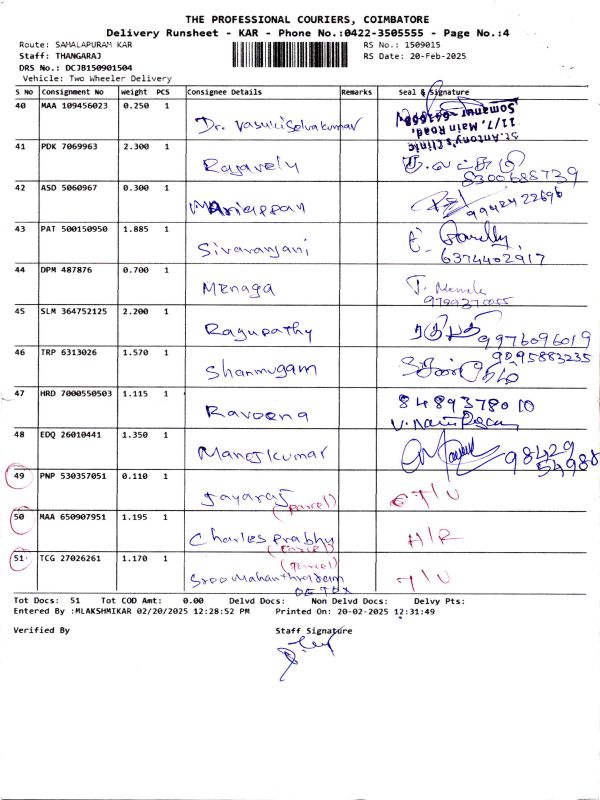 THE PROFESSIONAL COURIERS, COIMBATORE
Delivery Runsheet - KAR - Phone No.:0422-3505555 - Page No.:4
Route: SAMALAPURAM KAR RS No.: 1509015
Staff: THANGARAJ RS Date: 20-Feb-2025
DRS No.: DCJB150901504
Vehicle: Two Wheeler Delivery
S No Consignment No Weight PCS Consignee Details Remarks Seal & Signature
40 MAA 109456023 0.250 1 Dr. Vasuki Selvakumar
St. Antony's Clinic
11/7, Main Road,
Somanur - 641668
41 PDK 7069963 2.300 1 Rajavely
8300685739
42 ASD 5060967 0.300 1 Mariappan 9942422696
43 PAT 500150950 1.885 1 Sivaranjani
6374402917
44 DPM 487876 0.700 1 Menaga
45 SLM 364752125 2.200 1 Ragupathy 9976096019
46 TRP 6313026 1.570 1 Shanmugam 9095883235
47 HRD 7000550503 1.115 1 Raveena 8489378010
48 EDQ 26010441 1.350 1 Manojkumar 98429
54988
49 PNP 530357051 0.110 1 Jayaraj
(parcel)
50 MAA 650907951 1.195 1 Charles prabhu A/R
(parcel)
51 TCG 27026261 1.170 1 (parcel)
Tot Docs: 51 Tot COD Amt: 0.00 Delvd Docs: Non Delvd Docs: Delvy Pts:
Entered By :MLAKSHMIKAR 02/20/2025 12:28:52 PM Printed On: 20-02-2025 12:31:49
Verified By Staff Signature